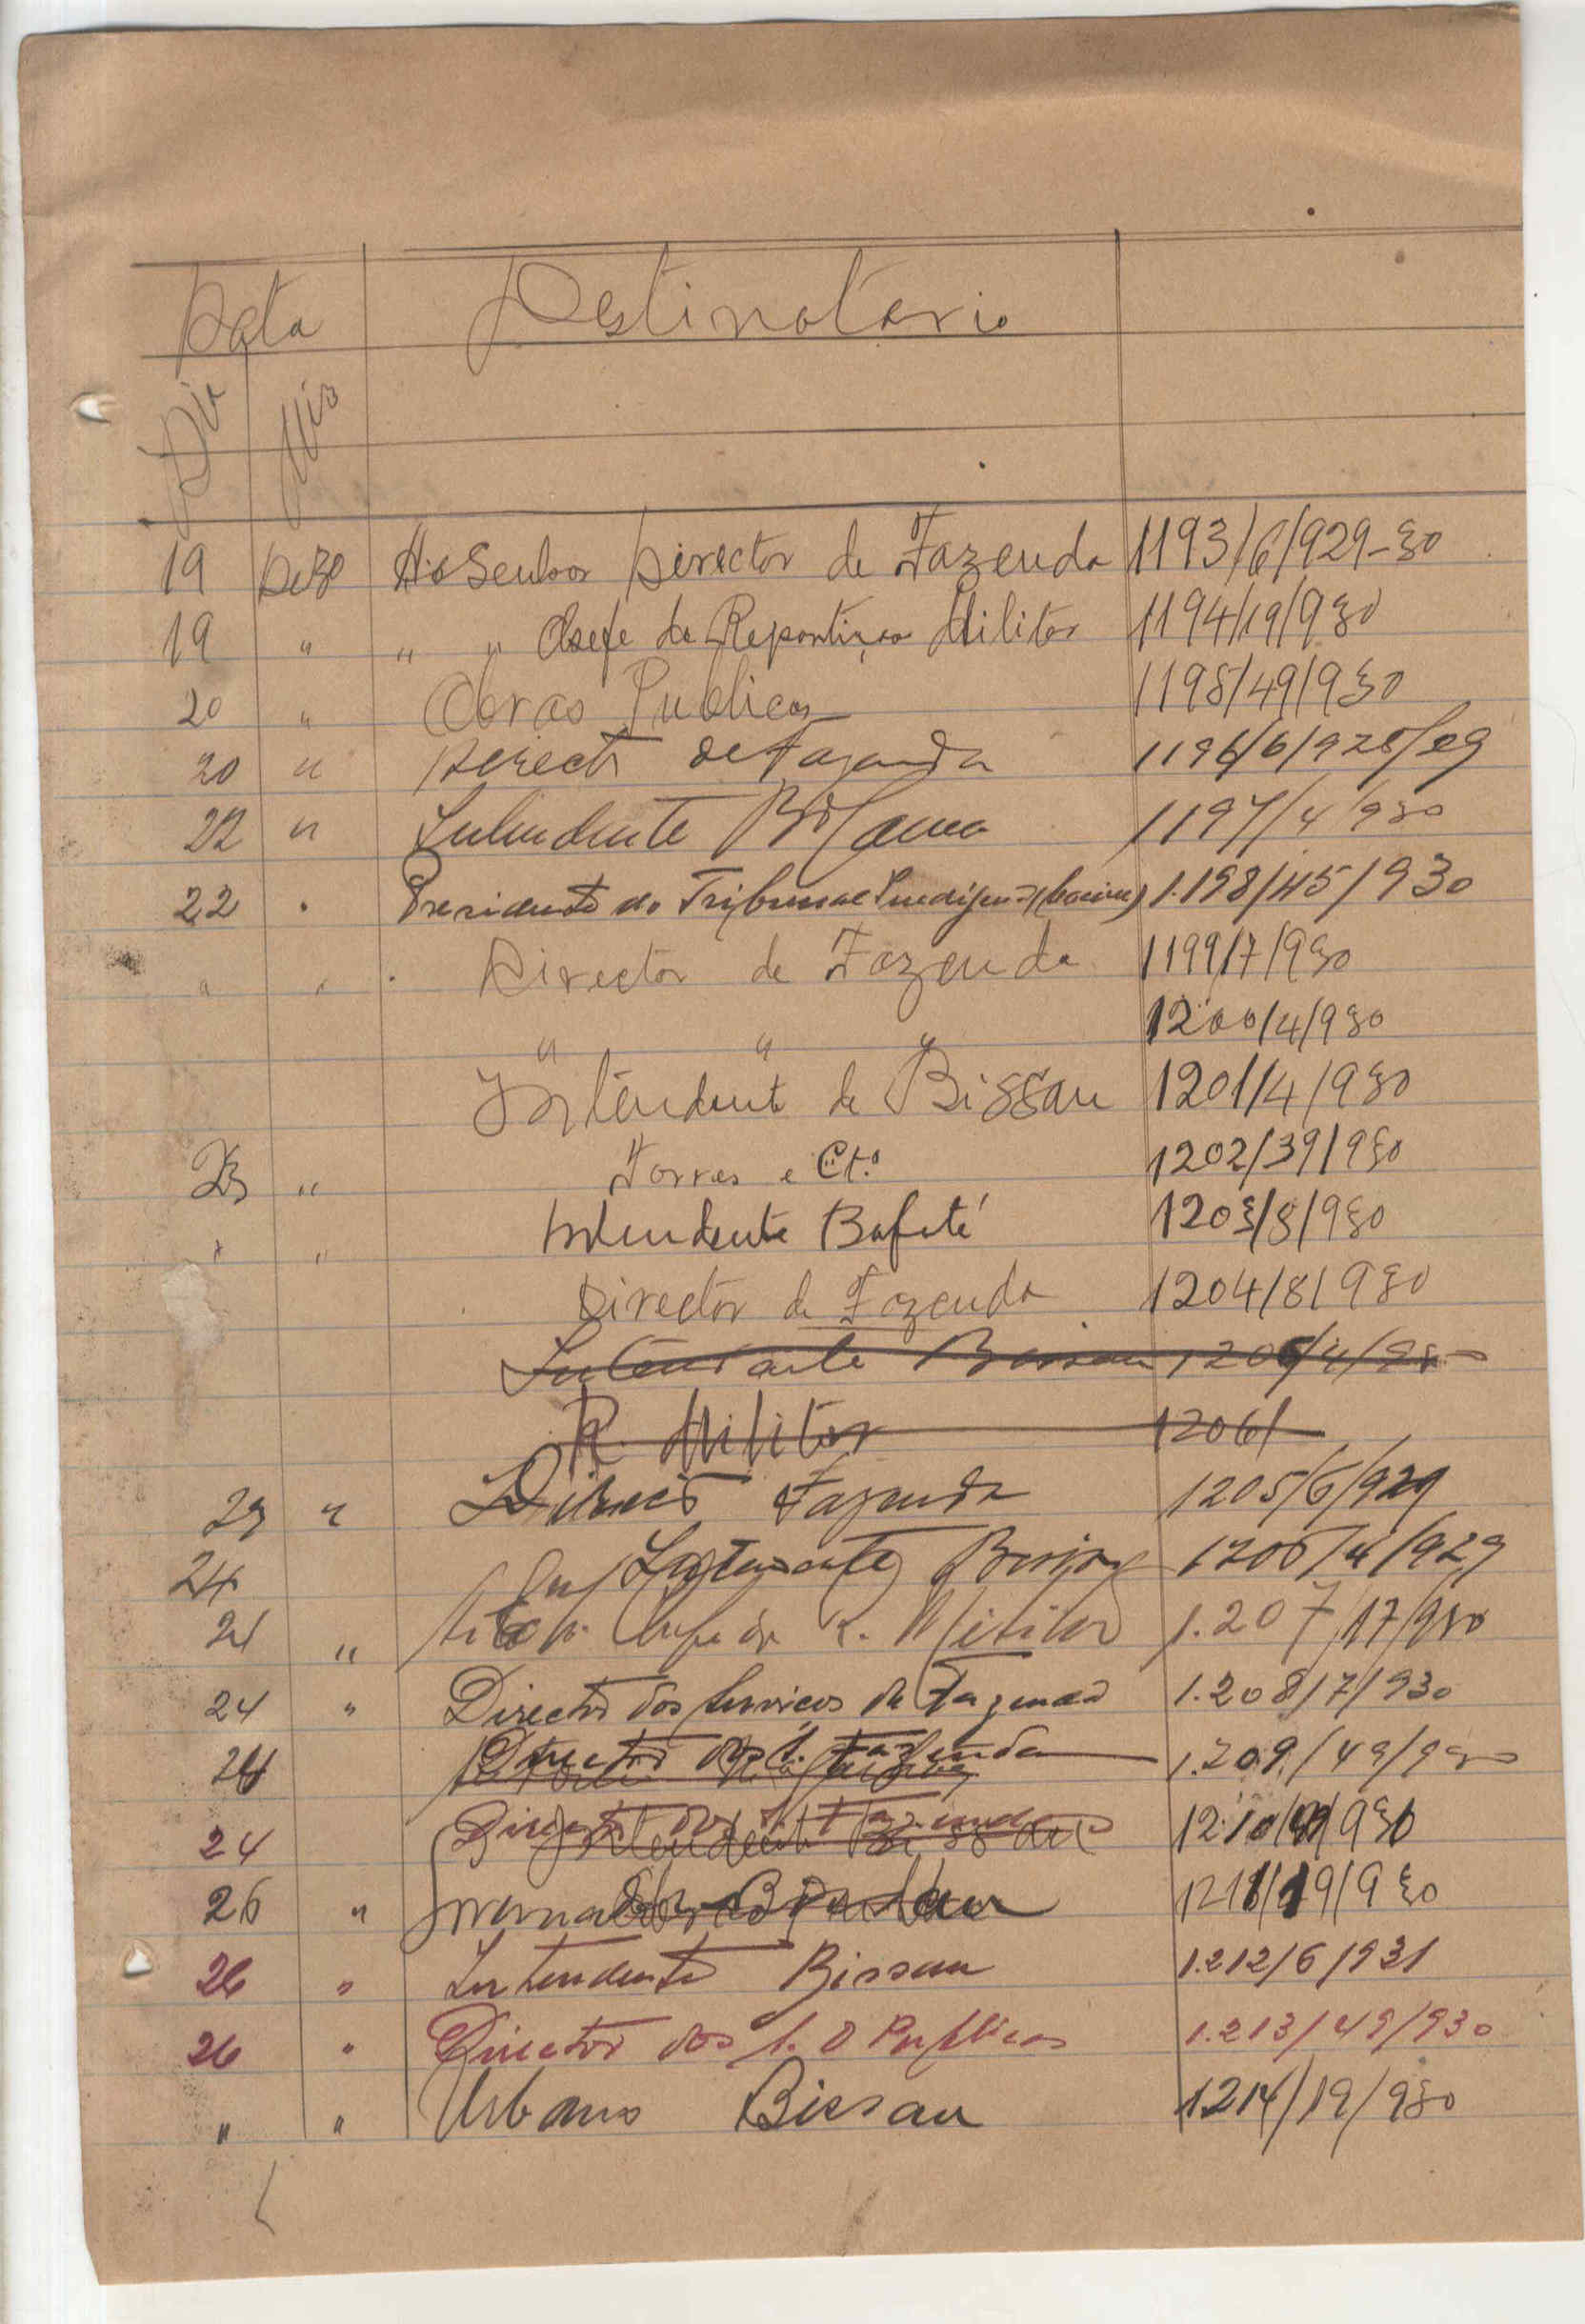 Data Destinatario
Dia Mês
19 Dezº Ao Senhor Director de Fazenda 1193/6/929-30
19 " " " Chefe da Repartição Militar 1194/19/930
20 " Obras Publicas 1195/49/930
20 " Direct de Fazenda 1196/6/928/29
22 " Intendente Bolama 1197/4/930
22 " Presidente do Tribunal Indígena 1.198/45/930
" " Director de Fazenda 1199/7/930
" " " 1200/4/930
Intendente de Bissau 1201/4/930
23 " Torres e Ctª 1202/39/930
" " Intendente Bafatá 1203/8/930
Director de Fazenda 1204/8/930
Intendente Bissau
R. Militar 1206/
23 " Fazenda 1205/6/929
24 Intendente 1206/4/929
24 " Chefe da R. Militar 1.207/17/930
24 " Director dos Serviços de Fazenda 1.208/7/930
24 Director dos S. Fazenda 1.209/49/930
24 Intendente Bissau 1210/ /930
26 " 1211/19/930
26 " Intendente Bissau 1.212/6/931
26 " Director dos S. O Publicas 1.213/49/930
" " Urbano Bissau 1214/19/930